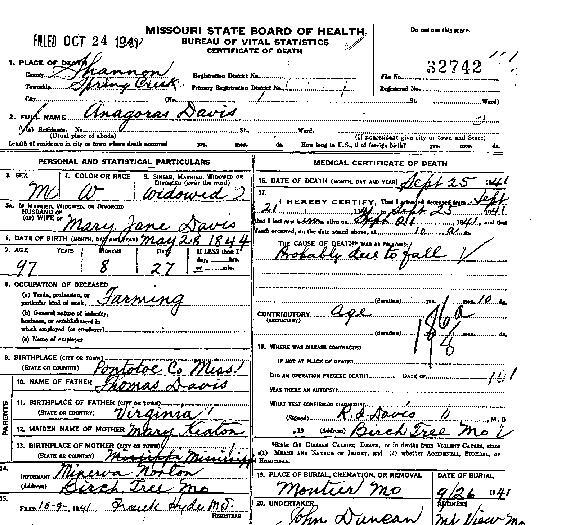 MISSOURI STATE BOARD OF HEALTH
BUREAU OF VITAL STATISTICS
CERTIFICATE OF DEATH
FILED OCT 24 1941
Do not use this space.
1. PLACE OF DEATH
County Shannon
Registration District No.
File No. 32742
Township Spring Creek
Primary Registration District No.
Registered No.
City (No. St. Ward)
2. FULL NAME Anagoras Davis
(a) Residence. No. St. Ward.
(Usual place of abode) (If nonresident give city or town and State)
Length of residence in city or town where death occurred yrs. mos. ds. How long in U.S., if of foreign birth? yrs. mos. ds.
PERSONAL AND STATISTICAL PARTICULARS
3. SEX
M
4. COLOR OR RACE
W
5. SINGLE, MARRIED, WIDOWED OR DIVORCED (write the word)
Widowed 2
5a. IF MARRIED, WIDOWED, OR DIVORCED
HUSBAND OF
(OR) WIFE OF Mary Jane Davis
6. DATE OF BIRTH (MONTH, DAY AND YEAR) May 28 1844
7. AGE YEARS MONTHS DAYS
97 8 27
8. OCCUPATION OF DECEASED
(a) Trade, profession, or
particular kind of work Farming
(b) General nature of industry,
business, or establishment in
which employed (or employer)
(c) Name of employer
9. BIRTHPLACE (CITY OR TOWN)
(STATE OR COUNTRY) Pontotoc Co Miss
10. NAME OF FATHER Thomas Davis
PARENTS
11. BIRTHPLACE OF FATHER (CITY OR TOWN)
(STATE OR COUNTRY) Virginia
12. MAIDEN NAME OF MOTHER Mary Keaton
13. BIRTHPLACE OF MOTHER (CITY OR TOWN)
(STATE OR COUNTRY) Mississippi
14.
INFORMANT Minerva Norton
(Address) Birch Tree Mo
15.
FILED 10-9-1941 Frank Hyde MD.
REGISTRAR
MEDICAL CERTIFICATE OF DEATH
16. DATE OF DEATH (MONTH, DAY AND YEAR) Sept 25 1941
17.
I HEREBY CERTIFY, That I attended deceased from Sept
21 Sept 25 1941
that I last saw alive on Sept 1941
death occurred, on the date stated above, at 10
THE CAUSE OF DEATH WAS AS FOLLOWS:
Probably due to fall
(duration) yrs. mos. 10 ds.
CONTRIBUTORY Age
(SECONDARY)
(duration) yrs. mos. ds.
186a
18
18. WHERE WAS DISEASE CONTRACTED
IF NOT AT PLACE OF DEATH?
DID AN OPERATION PRECEDE DEATH? DATE OF
WAS THERE AN AUTOPSY?
WHAT TEST CONFIRMED DIAGNOSIS?
(Signed) R. D. Davis M.D.
, 19 (Address) Birch Tree Mo
19. PLACE OF BURIAL, CREMATION, OR REMOVAL
Montier Mo
DATE OF BURIAL
9/26 1941
20. UNDERTAKER
John Duncan
ADDRESS
Mt View Mo